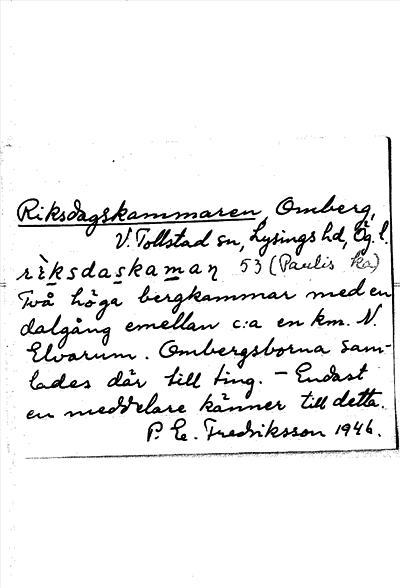 Riksdagskammaren, Omberg,
V. Tollstad sn, Lysings hd, Ög. l.
rìksdaskaman 53 (Paulis ka)
Två höga bergkammar med en
dalgång emellan c:a en km. N.
Elvarum. Ombergsborna sam-
lades där till ting. – Endast
en meddelare känner till detta.
P. E. Fredriksson 1946.